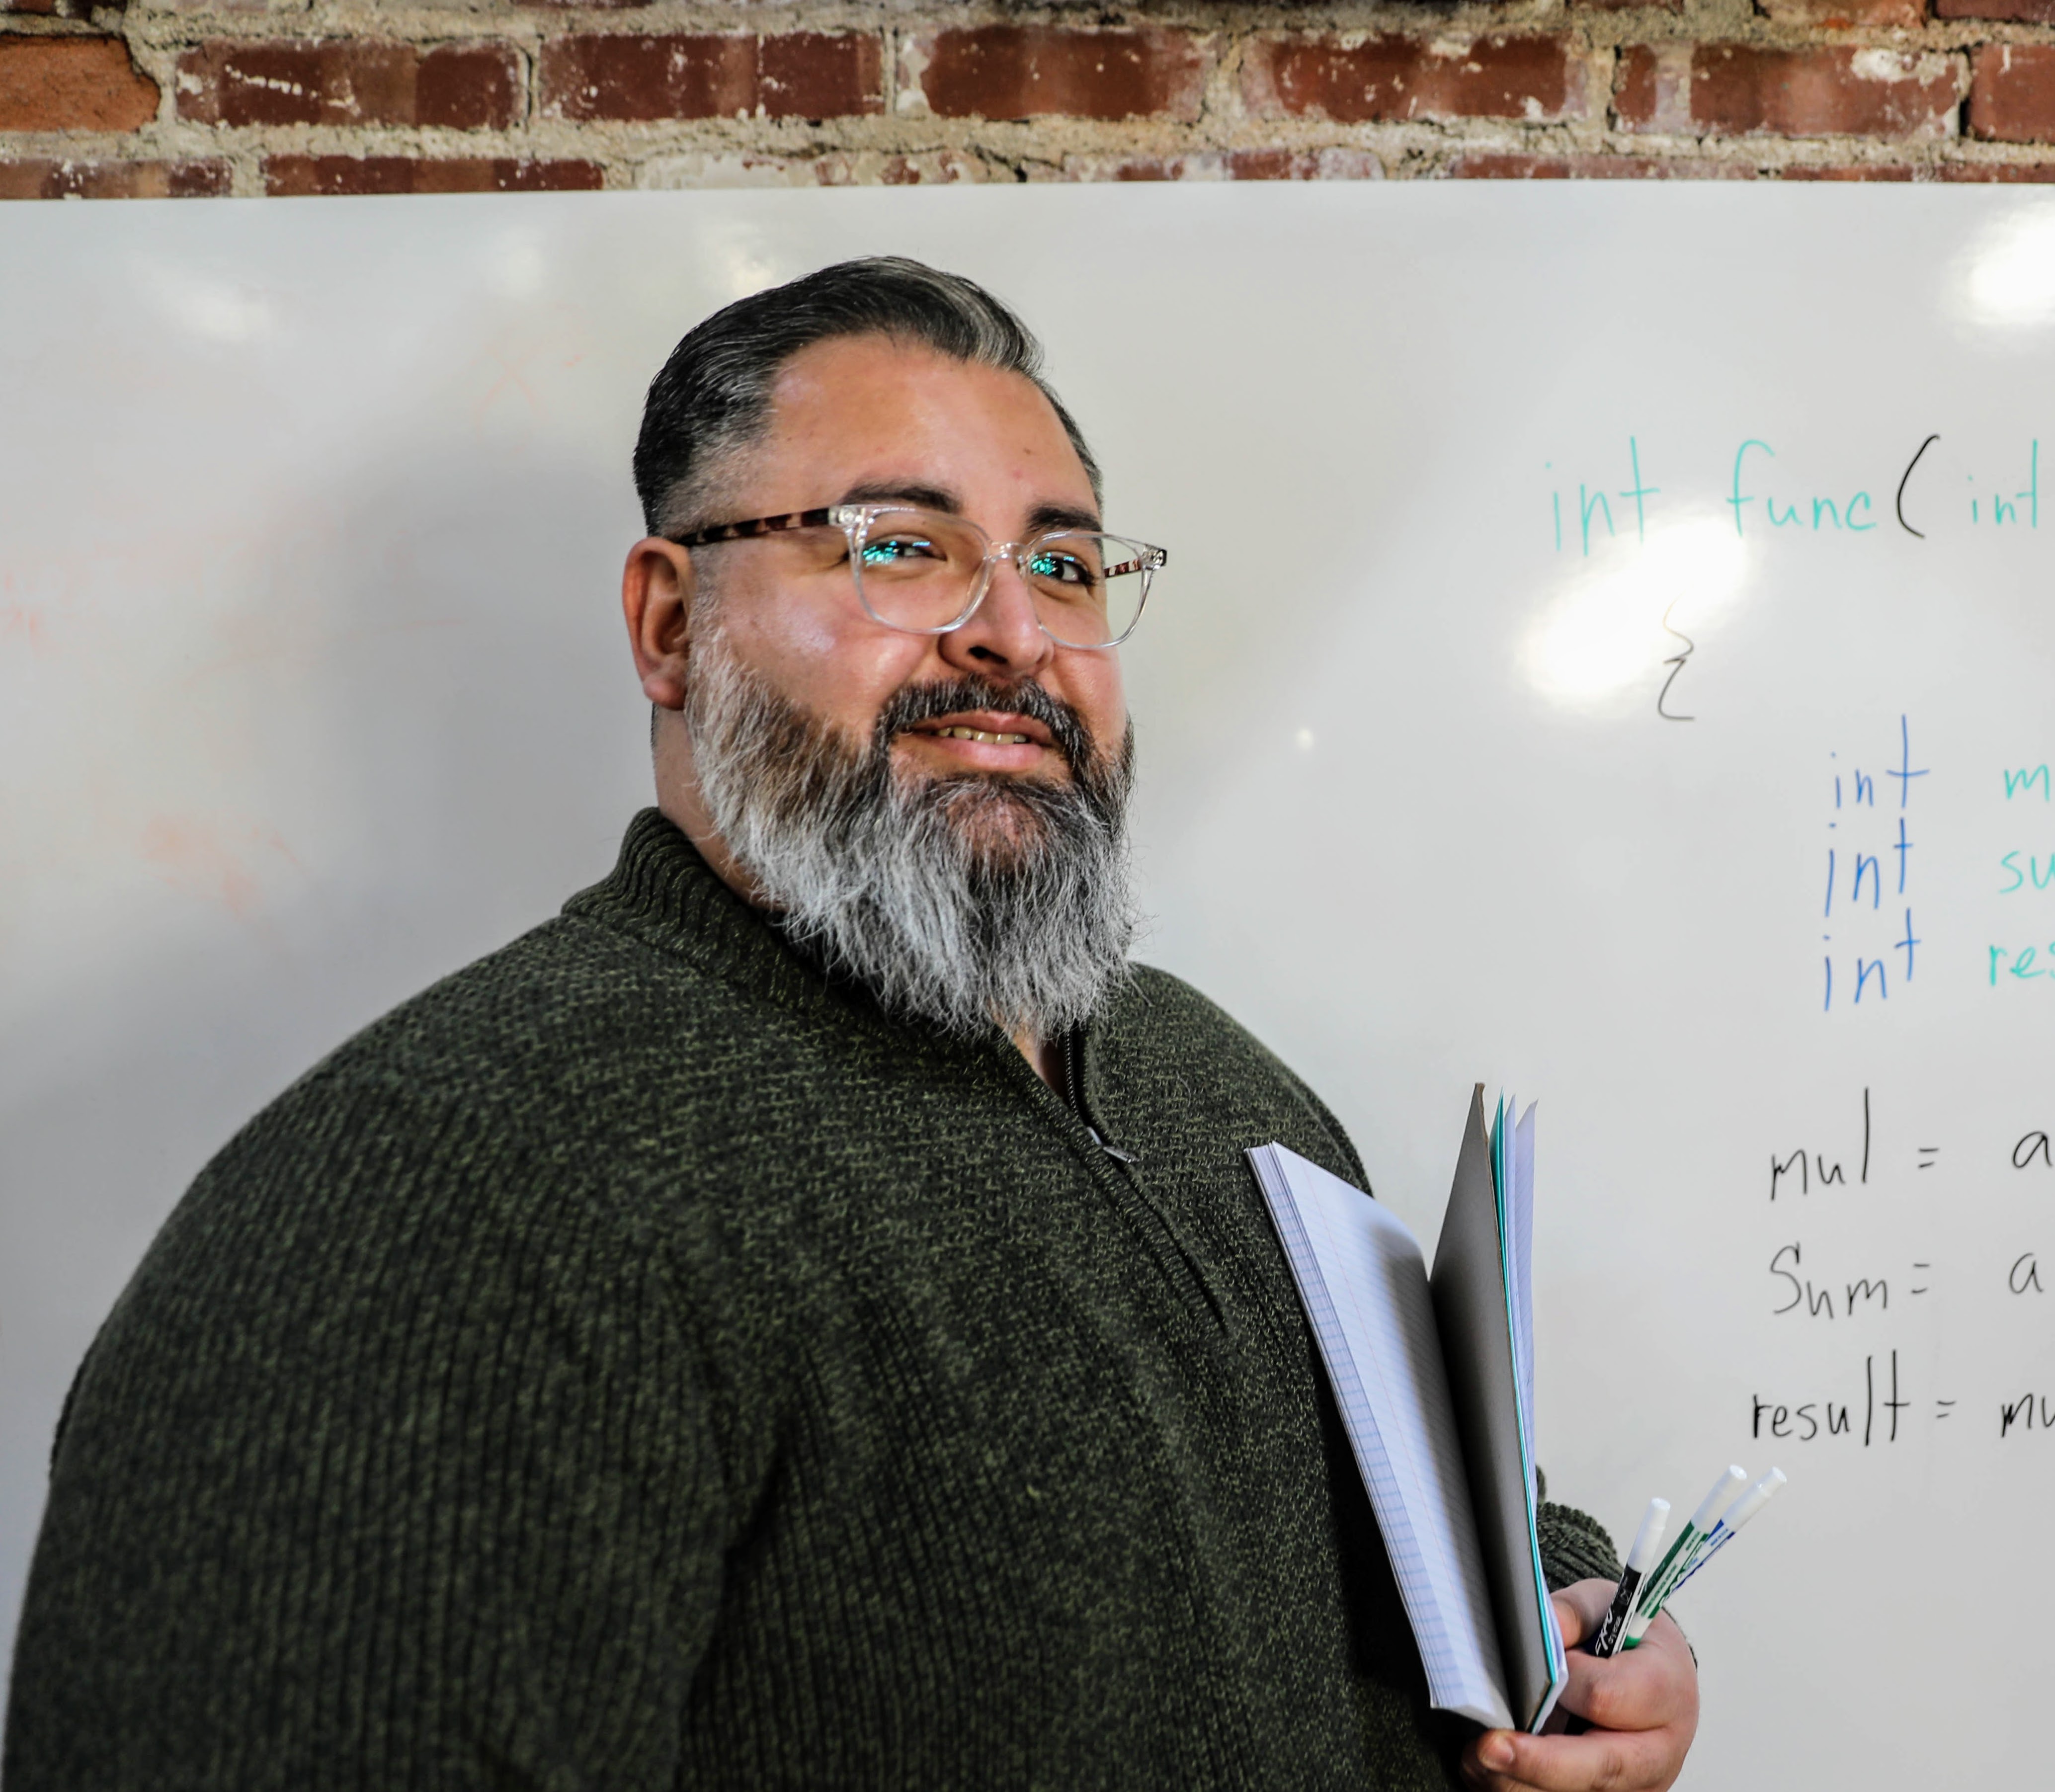 int func( int
{
int m
int su
int res
mul = a
Sum = a
result = mu
EXPO